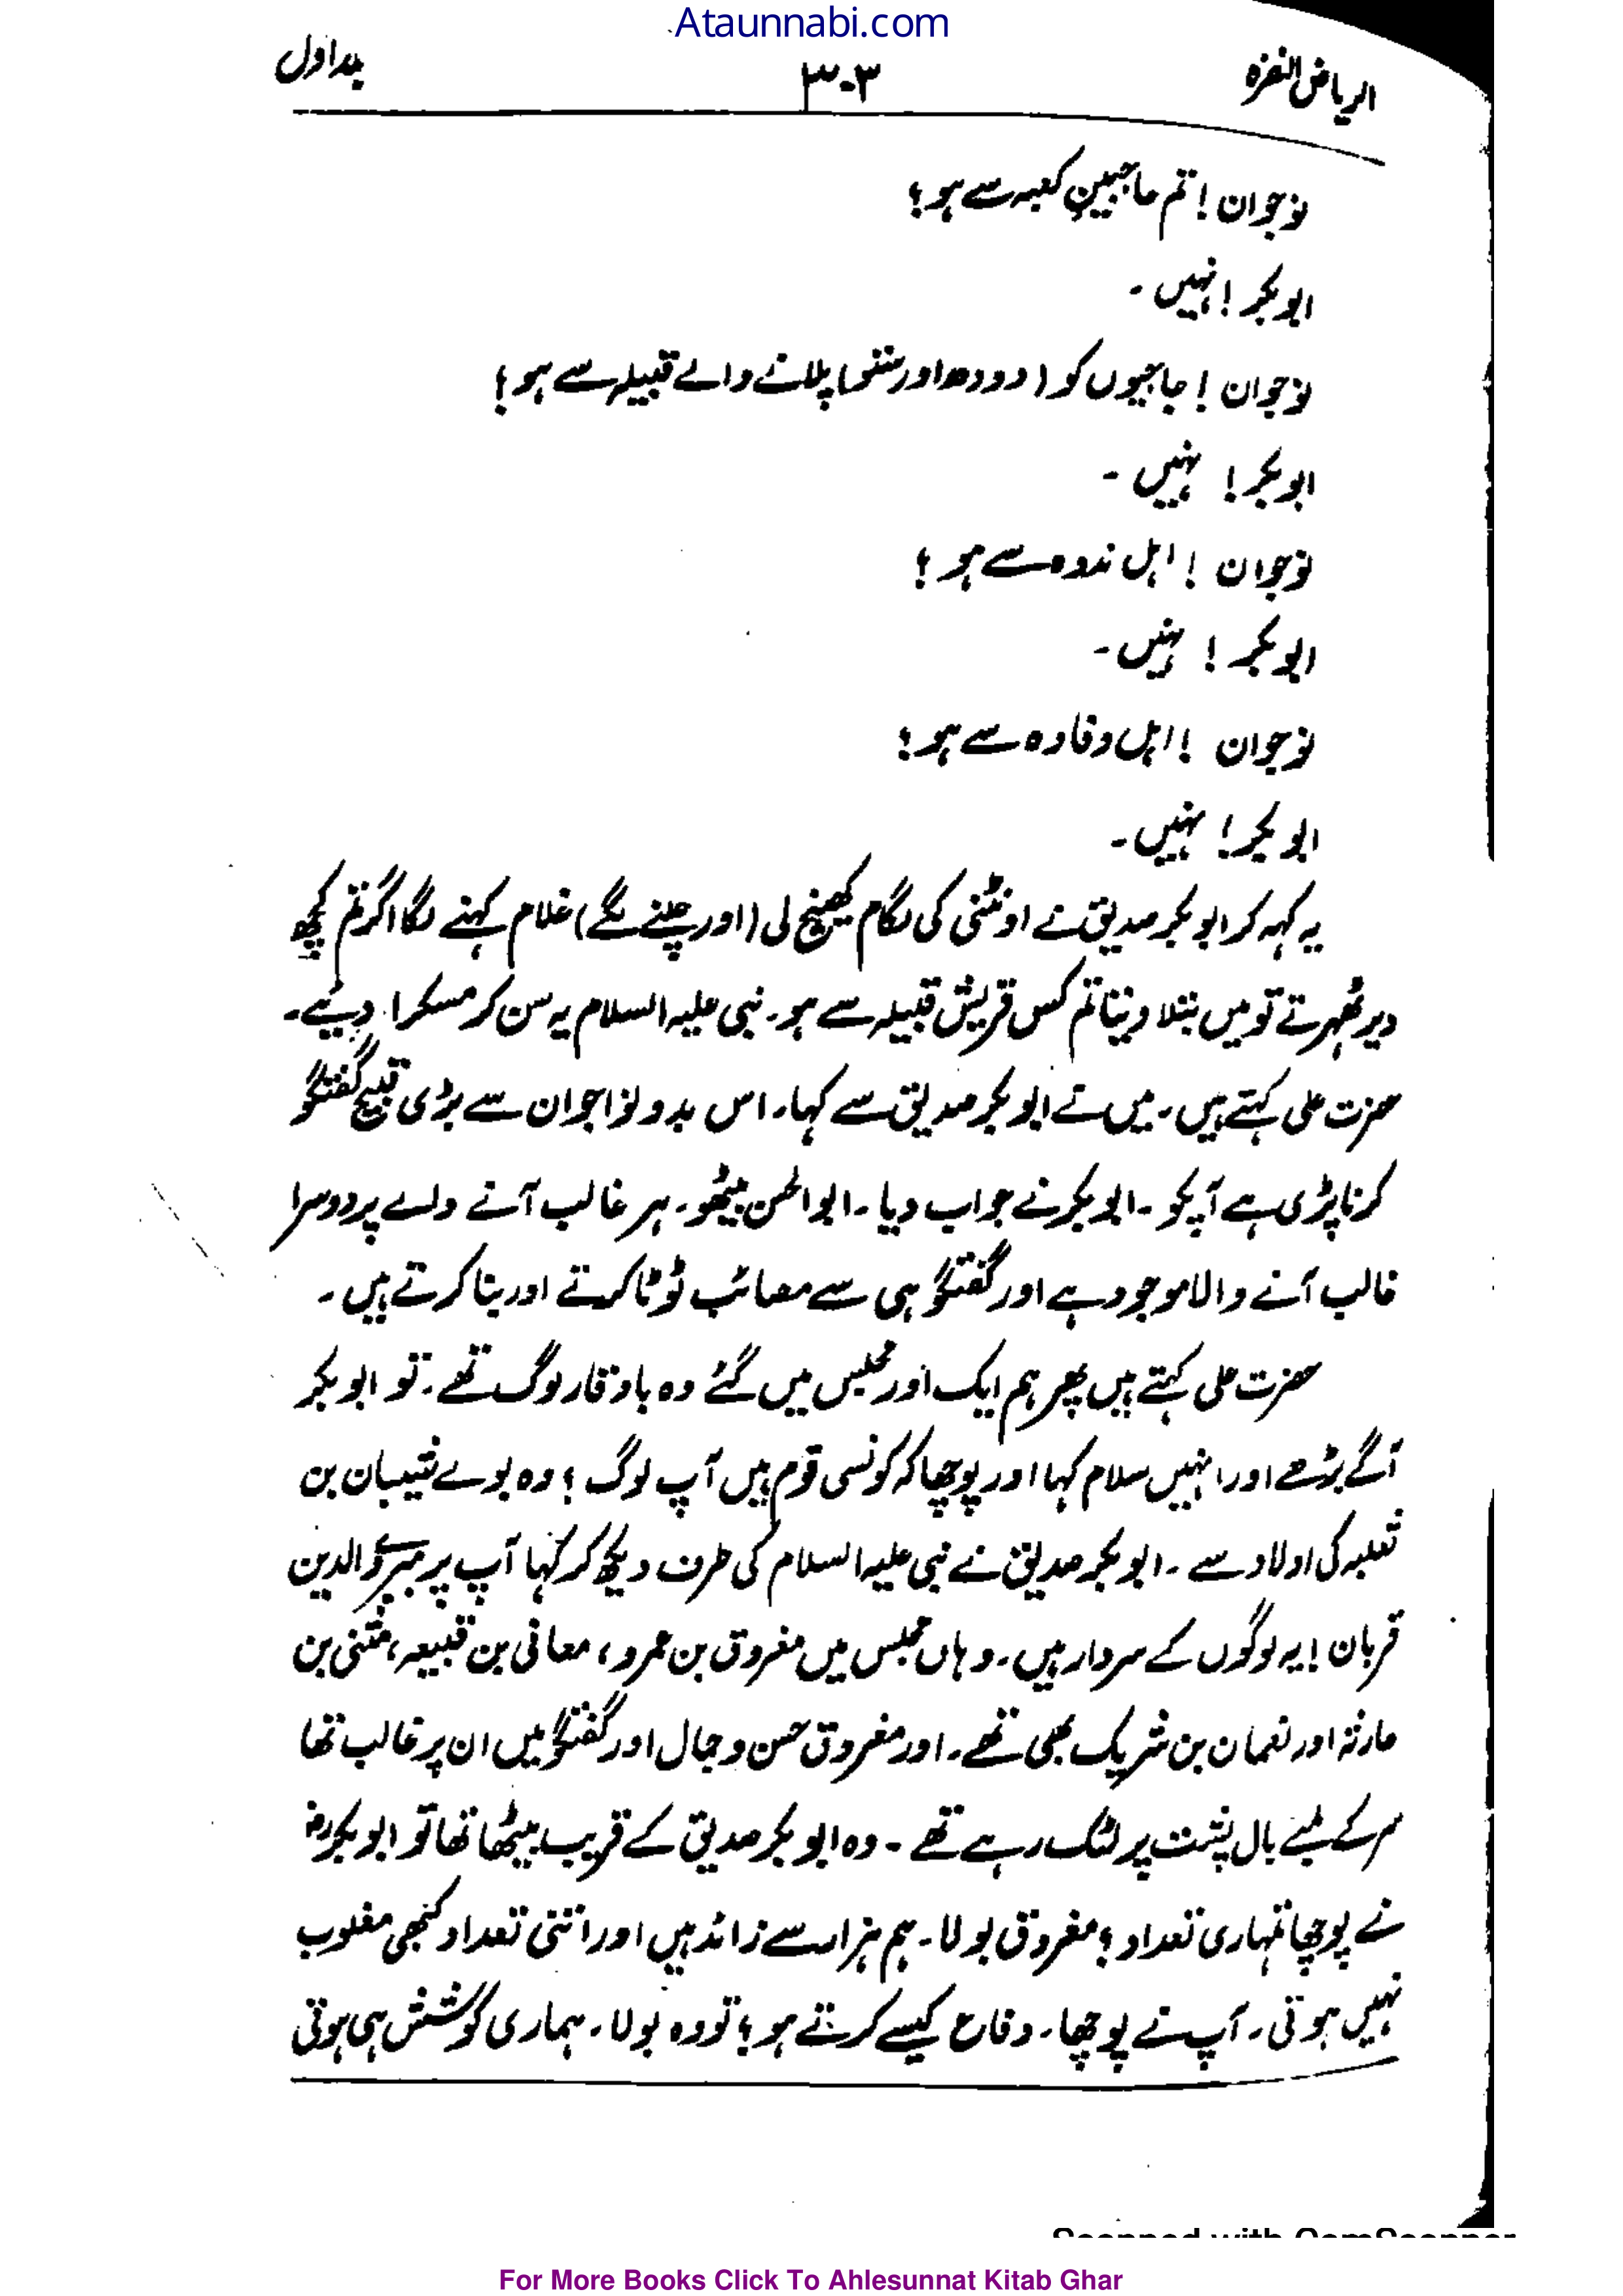 Ataunnabi.com
الریاض النضرہ ۳۰۳ جلد اول
نوجوان ! تم حاجبین کعبہ سے ہو ؟
ابوبکر ! نہیں ۔
نوجوان ! حاجیوں کو (دودھ اور ستّو) پلانے والے قبیلہ سے ہو ؟
ابوبکر ! نہیں ۔
نوجوان ! اہل ندوہ سے ہو ؟
ابوبکر ! نہیں ۔
نوجوان ! اہل وفادہ سے ہو ؟
ابوبکر ! نہیں ۔
یہ کہہ کر ابوبکر صدیق نے اونٹنی کی لگام کھینچ لی (اور چلنے لگے) غلام کہنے لگا اگر تم کچھ
دیر ٹھہرتے تو میں بتلا دیتا تم کس قریش قبیلہ سے ہو۔ نبی علیہ السلام یہ سن کر مسکرا دیئے۔
حضرت علی کہتے ہیں۔ میں نے ابوبکر صدیق سے کہا۔ اس بدو نواجوان سے بڑی قبیح گفتگو
کرنا پڑی ہے آپکو ۔ ابوبکر نے جواب دیا ۔ ابوالحسن بیٹھو۔ ہر غالب آنے والے پر دوسرا
غالب آنے والا موجود ہے اور گفتگو ہی سے مصائب ٹوٹا کرتے اور بنا کرتے ہیں ۔
حضرت علی کہتے ہیں پھر ہم ایک اور مجلس میں گئے وہ باوقار لوگ تھے ۔ تو ابوبکر
آگے بڑھے اور انہیں سلام کہا اور پوچھا کہ کونسی قوم ہیں آپ لوگ ؟ وہ بولے شیبان بن
ثعلبہ کی اولاد سے ۔ ابوبکر صدیق نے نبی علیہ السلام کی طرف دیکھ کر کہا آپ پر میرے والدین
قربان ! یہ لوگوں کے سردار ہیں ۔ وہاں مجلس میں مفروق بن عمرو ، معانی بن قبیعہ ، مثنی بن
حارثہ اور نعمان بن شریک بھی تھے ۔ اور مفروق حسن و جمال اور گفتگو میں ان پر غالب تھا
سر کے لمبے بال پشت پر لٹک رہے تھے ۔ وہ ابوبکر صدیق کے قریب بیٹھا تھا تو ابوبکر رضہ
نے پوچھا تمہاری تعداد ؟ مفروق بولا ۔ ہم ہزار سے زائد ہیں اور اتنی تعداد کبھی مغلوب
نہیں ہوتی ۔ آپ نے پوچھا ۔ دفاع کیسے کرتے ہو ؟ تو وہ بولا ۔ ہماری کوشش ہی ہوتی
For More Books Click To Ahlesunnat Kitab Ghar